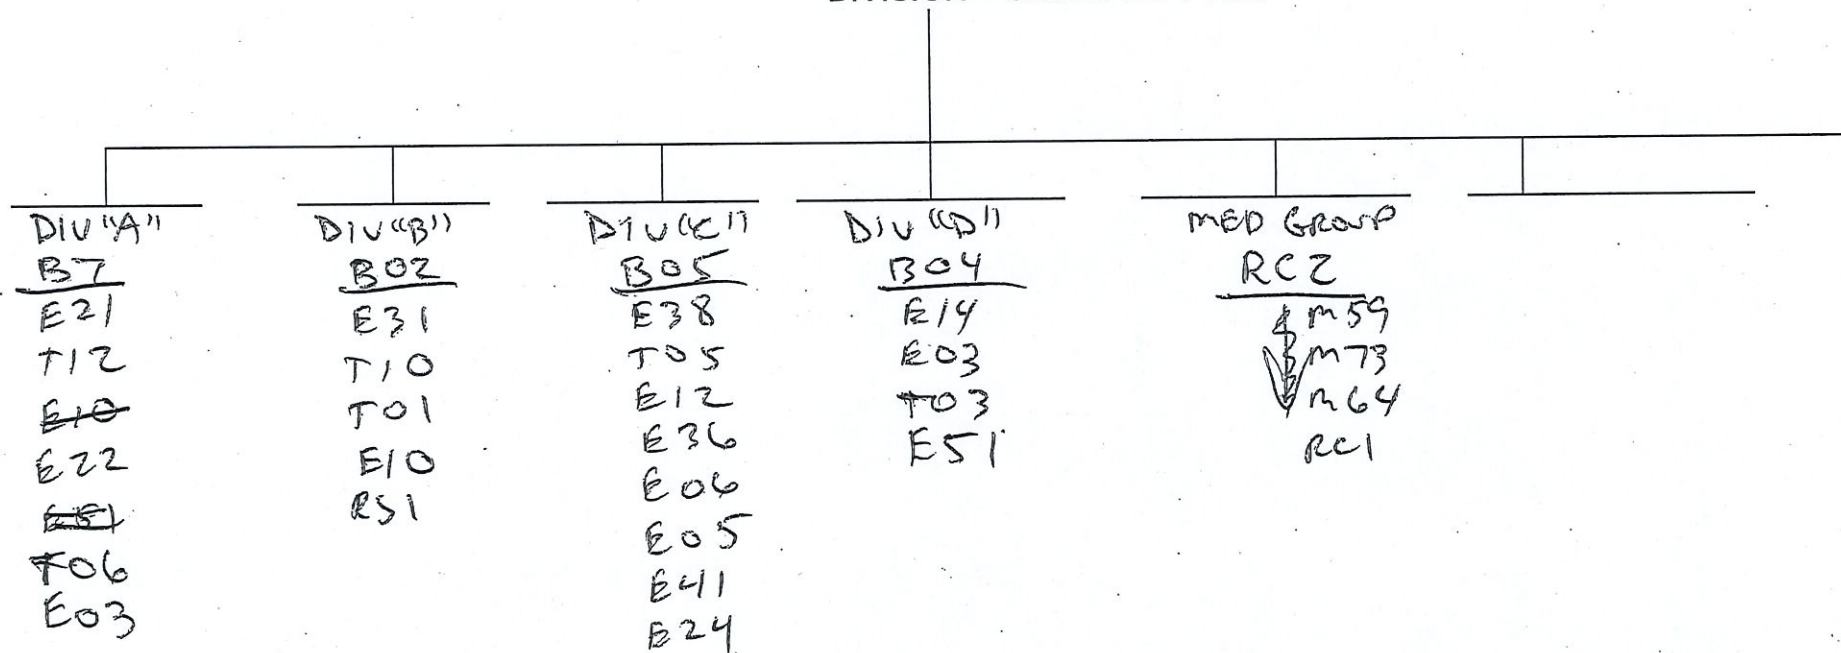 DIV "A"
B7
E21
T12
E10
E22
E51
T06
E03
DIV "B"
B02
E31
T10
T01
E10
RS1
DIV "C"
B05
E38
T05
E12
E36
E06
E05
E41
E24
DIV "D"
B04
E14
E03
T03
E51
MED GROUP
RC2
M59
M73
M64
RC1